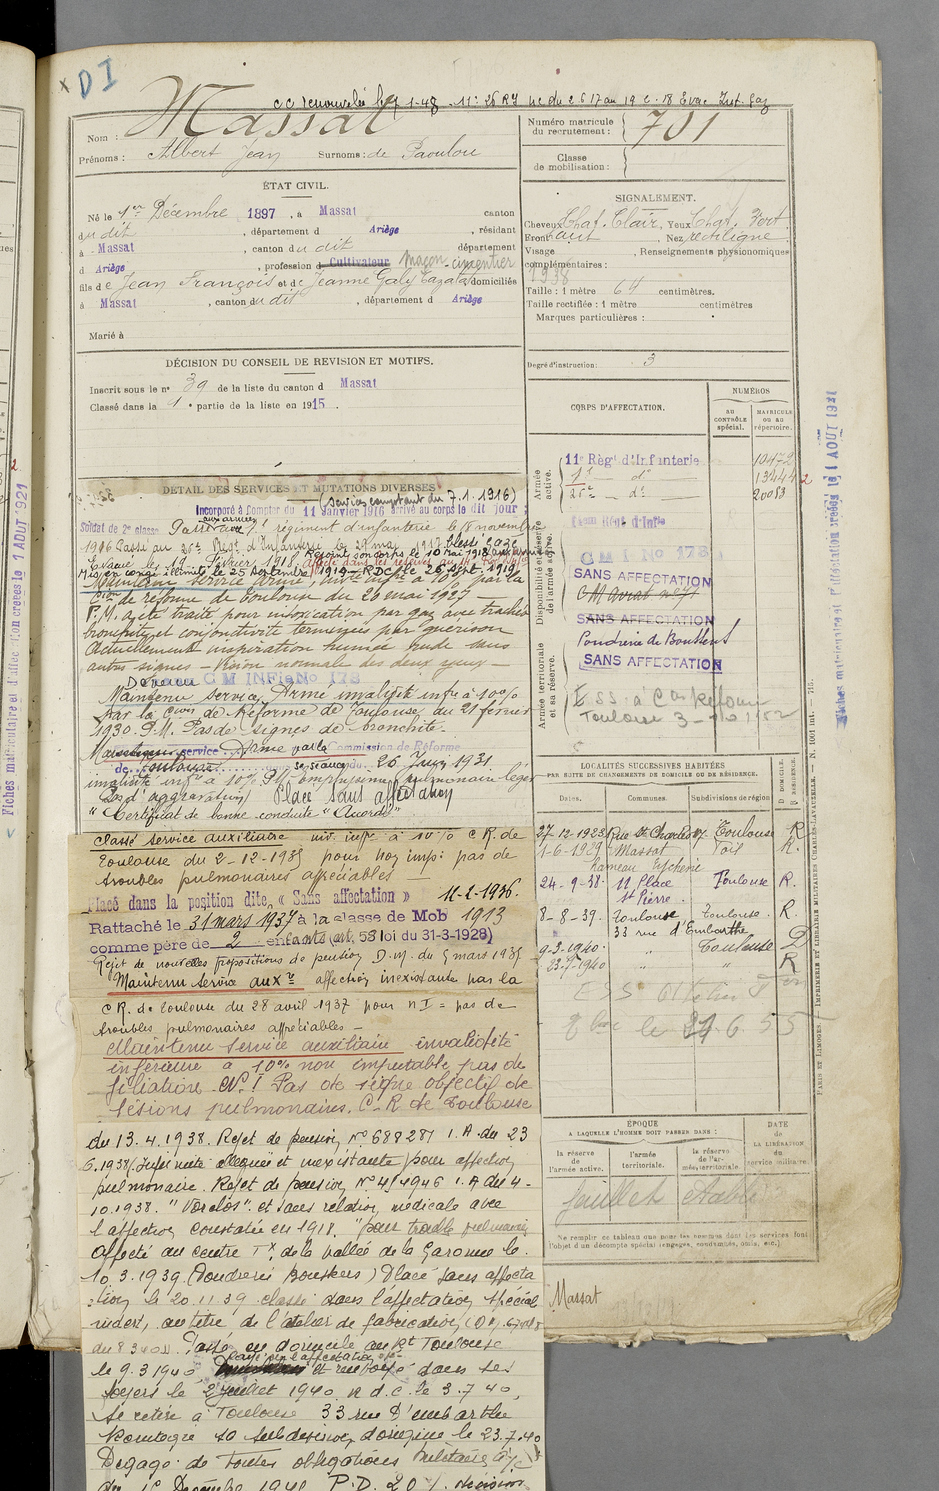 DI
CC renouvelée le 7-1-48 - 11e 26 RI nc du 2 6 17 au 19 2 - 18 Evac Int. gaz
Nom : Massat
Prénoms : Albert Jean Surnoms : de Paoulou
Numéro matricule du recrutement : 701
Classe de mobilisation :
ÉTAT CIVIL.
Né le 1er Décembre 1897, à Massat canton
du dit, département d Ariège, résidant
à Massat, canton du dit département
d Ariège, profession d Cultivateur Maçon - cimentier
fils de Jean François et de Jeanne Galy Gazat domiciliés
à Massat, canton du dit, département d Ariège
Marié à
SIGNALEMENT.
Cheveux Chat. Clair, Yeux Chat. Vert
Front haut Nez rectiligne
Visage , Renseignements physionomiques
complémentaires :
1938
Taille : 1 mètre 64 centimètres.
Taille rectifiée : 1 mètre centimètres
Marques particulières :
Degré d'instruction : 3
DÉCISION DU CONSEIL DE REVISION ET MOTIFS.
Inscrit sous le n° 39 de la liste du canton d Massat
Classé dans la 1e partie de la liste en 1915.
DÉTAIL DES SERVICES ET MUTATIONS DIVERSES
(Service comptant du 7.1.1916)
Incorporé à Compter du 11 Janvier 1916 arrivé au corps le dit jour
Soldat de 2e classe Passé aux armées 1er régiment d'infanterie le 8 novembre
1916 Passé au 26e Régt d'Infanterie le 27 mai 1917 blessé gaze
Evacué le 19 février 1918 Rejoint son corps le 10 Mai 1918 aux armées
Mis en congé illimité le 25 Septembre 1919 - RDC le 26 sept. 1919
Maintenu service armé, invté infre à 10% par la
Con de réforme de Toulouse du 20 mai 1927 -
P.M. a été traité pour intoxication par gaz avec trachéo
bronchite et conjonctivite terminées par guérison
Actuellement inspiration humée rude sans
autres signes - Vision normale des deux yeux -
Devenu CM INFie No 178
Maintenu Service Armé invalidité infre à 10%
par la Con de Réforme de Toulouse du 21 février
1930. P.M. Pas de signes de bronchite.
Maintenu service Armé par la Commission de Réforme
de Toulouse sa séance du 26 Juin 1931
invalidité infre à 10% P.M. emphysème pulmonaire léger
Pas d'aggravation Placé Sans affectation
"Certificat de bonne conduite "Accordé"
Classé service auxiliaire inv. infre à 10% C.R. de
Toulouse du 2-12-1935 pour non imp: pas de
troubles pulmonaires appréciables -
Placé dans la position dite « Sans affectation » 11-2-1936.
Rattaché le 31 mars 1937 à la classe de Mob 1913
comme père de 2 enfants (art. 58 loi du 31-3-1928)
Rejet de nouvelles propositions de pension D.M. du 5 mars 1935
Maintenu Service auxre affection inexistante par la
C.R. de Toulouse du 28 avril 1937 pour n I = pas de
troubles pulmonaires appréciables -
Maintenu Service auxiliaire invalidité
inférieure à 10% non imputable pas de
filiation. N.I Pas de signe objectif de
lésions pulmonaires. C.R de Toulouse
du 13.4.1938. Rejet de pension N° 688287 I.A. du 23
6.1938 (Infirmité alléguée et inexistante) pour affection
pulmonaire. Rejet de pension N° 4/4946 I.A du 4-
10.1938. et sans relation médicale avec
l'affection constatée en 1918. "pour trouble pulmonaire
Affecté au centre Tx de la vallée de la Garonne le
10.3.1939. (Poudrerie Boussens) Placé sans affecta
:tion le 20.11.39 classé dans l'affectation spéciale
au titre de l'atelier de fabrication
Passé en domicile au Rt Toulouse
le 9.3.1940 et renvoyé dans ses
foyers le 2 Juillet 1940 R.d.c. le 3.7.40,
se retire à Toulouse 33 rue d'embarthe
Montagne so subdivision d'origine le 23.7.40
Dégagé de toutes obligations militaires
du 1er Décembre 1941 P.D. 20% décision
CORPS D'AFFECTATION.
NUMÉROS
AU CONTRÔLE spécial.
MATRICULE OU AU répertoire.
Armée active.
11e Régt d'Infanterie 10472
1er do 13444 2
26e do 20083
Disponibilité et réserve de l'armée active.
Régt d'Infie
C M I No 178
SANS AFFECTATION
SANS AFFECTATION
Poudrerie de Boussens
SANS AFFECTATION
Armée territoriale et sa réserve.
ESS. à Con Réforme
Toulouse
LOCALITÉS SUCCESSIVES HABITÉES
PAR SUITE DE CHANGEMENTS DE DOMICILE OU DE RÉSIDENCE.
Dates. Communes. Subdivisions de région D. DOMICILE. R. RÉSIDENCE.
27-12-1923 Rue St Charles 17 Toulouse R.
1-6-1929 Massat Foix R.
hameau Espchenie
24-9-38. 11 Place St Pierre. Toulouse R.
8-8-39. Toulouse Toulouse. R.
33 rue d'Embarthe
9-3-1940. " Toulouse D
23.7.1940 " " R
ESS
le 24.6.55
ÉPOQUE
A LAQUELLE L'HOMME DOIT PASSER DANS :
la réserve de l'armée active.
l'armée territoriale.
la réserve de l'armée territoriale.
DATE de LA LIBÉRATION du service militaire.
feuillet établi
Ne remplir ce tableau que pour les hommes dont les services font
l'objet d'un décompte spécial (engagés, condamnés, omis, etc.).
Massat
PARIS ET LIMOGES. — IMPRIMERIE ET LIBRAIRIE MILITAIRES CHARLES-LAVAUZELLE. — N° 1001 int. — 715.
Fiches matriculaire et d'affectation créées le 1 AOUT 1921
Fiches matriculaire et d'affectation créées le 1 AOUT 1921